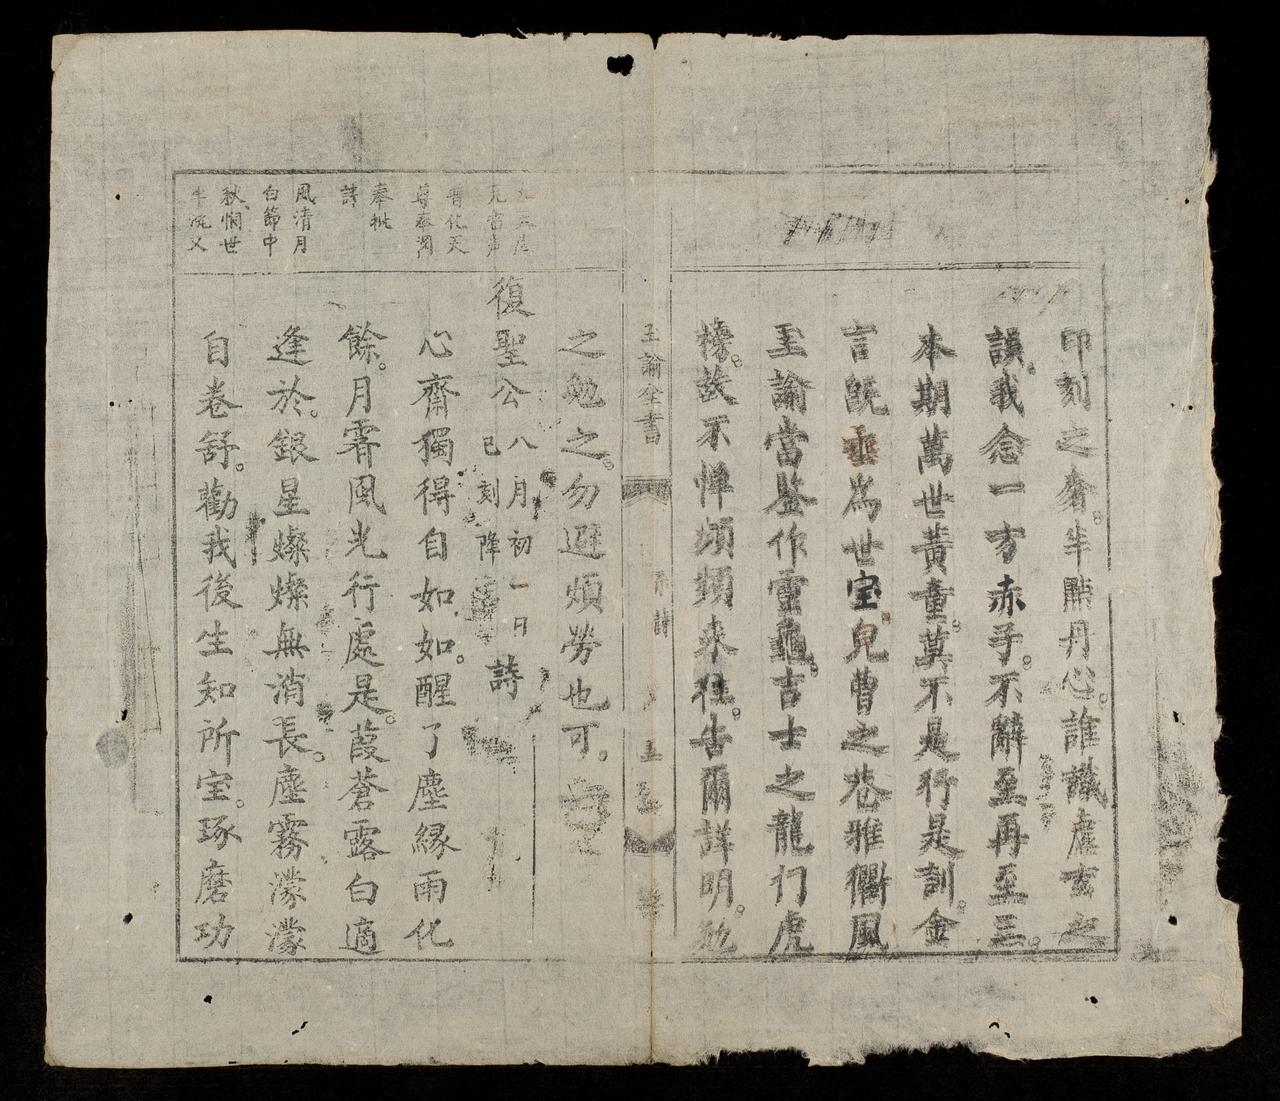 印刻之齋。半點丹心。誰識虚玄之
讀。我念一方赤子。不辭至再至三。
本期萬世黃童。莫不是行是訓。金
言既垂為世宝。皃曹之巷雅衢風
玉諭當鉴作靈龜。吉士之龍门虎
榜。故不憚頻頻来往。告爾詳明。勉
玉諭全書
五
之勉之。勿避煩勞也可。
復聖公 八月初一日 詩
已刻降
心齋獨得自如如。醒了塵縁雨化
餘。月霽風光行處是。葭蒼露白適
逢於。銀星燦燦無消長。塵霧濛濛
自卷舒。勸我後生知所宝。琢磨功
普化天
尊奉閱
奉批
詩
風清月
白節中
秋憫世